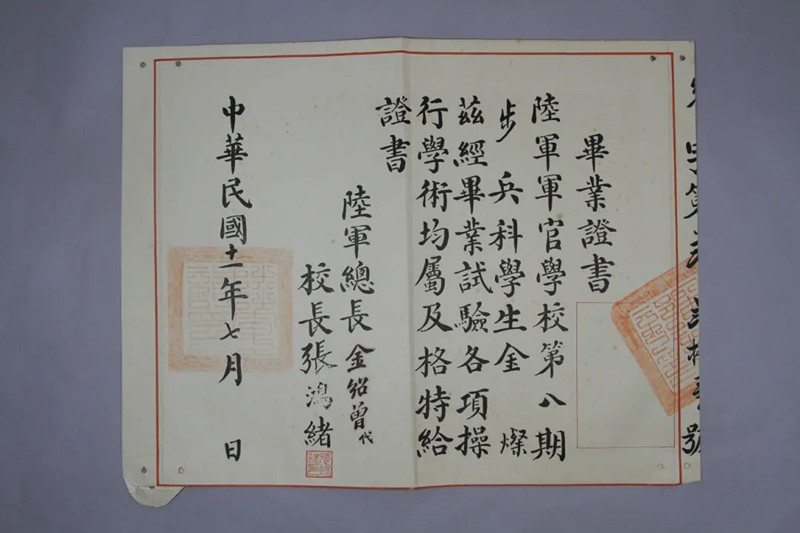 畢業證書
陸軍軍官學校第八期
步兵科學生金燦
茲經畢業試驗各項操
行學術均屬及格特給
證書
陸軍總長金紹曾代
校長張鴻緒
中華民國十一年七月 日